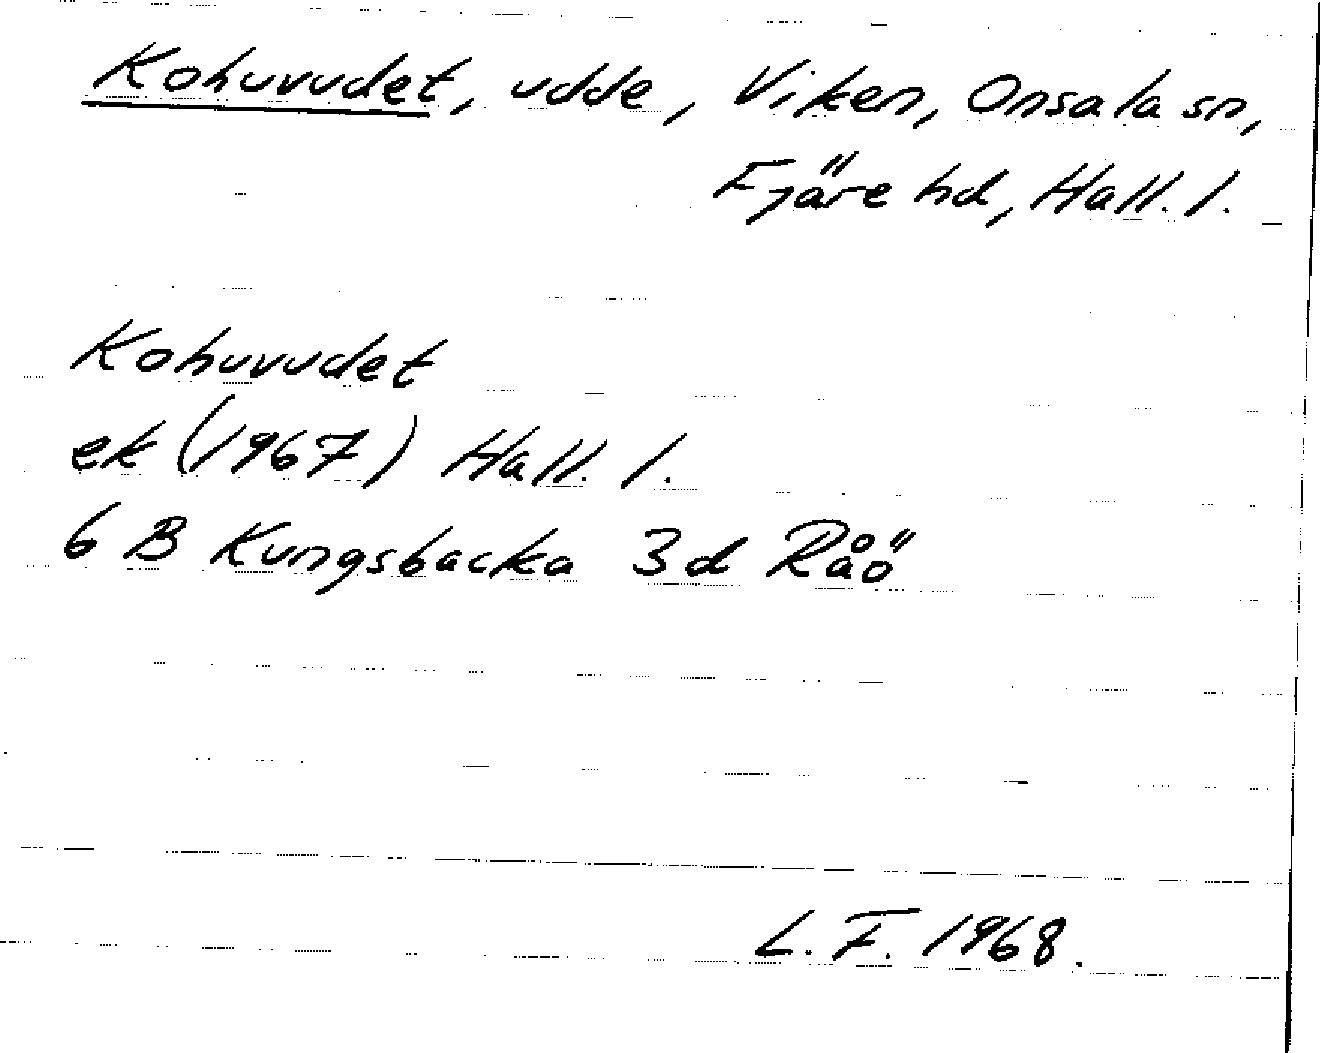 Kohuvudet, udde, Viken, Onsala sn,
Fjäre hd, Hall. l.
Kohuvudet
ek (1967) Hall. l.
6 B Kungsbacka 3d Råö
L. F. 1968.